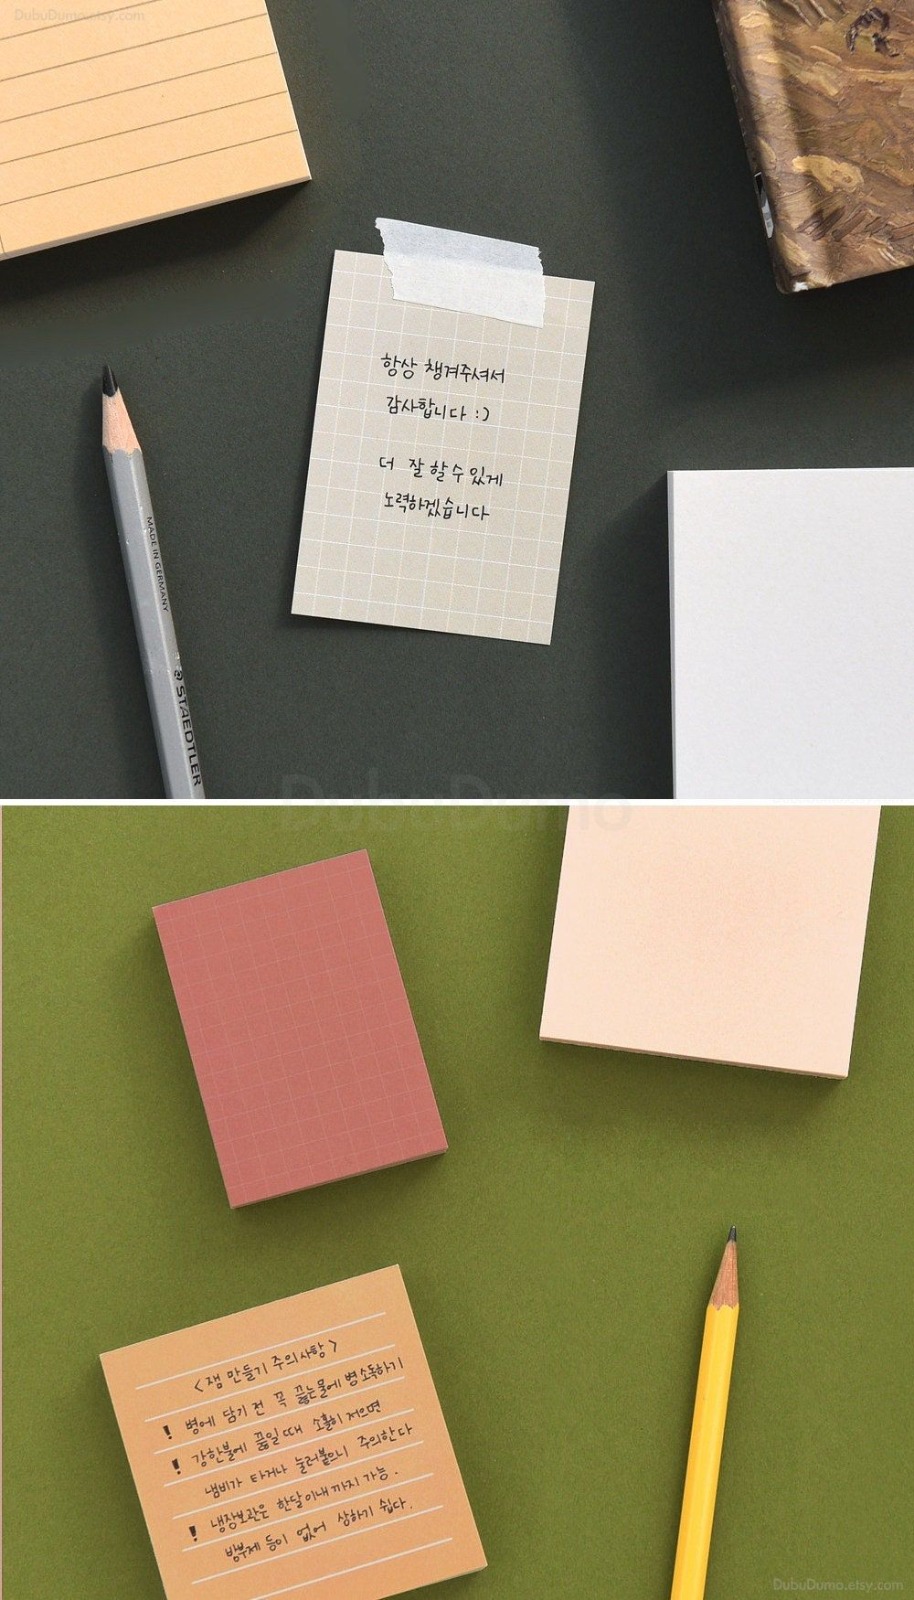 DubuDumo.etsy.com
항상 챙겨주셔서
감사합니다 :)
더 잘 할 수 있게
노력하겠습니다
MADE IN GERMANY
STAEDTLER
DubuDumo
<잼 만들기 주의사항>
! 병에 담기 전 꼭 끓는물에 병소독하기
! 강한불에 끓일 때 소홀히 저으면
냄비가 타거나 눌러붙으니 주의한다
! 냉장보관은 한달이내까지 가능.
방부제 등이 없어 상하기 쉽다.
DubuDumo.etsy.com